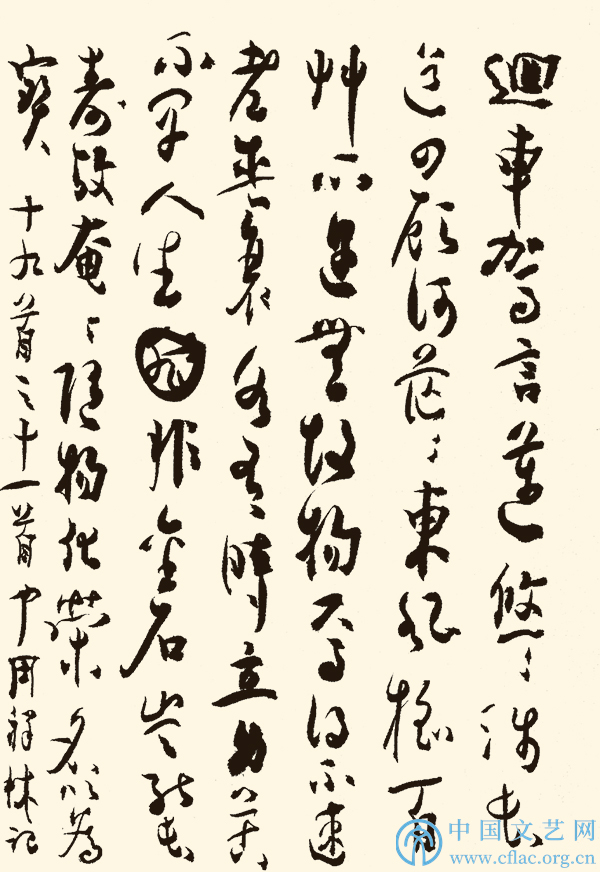 迴車駕言邁悠〻涉長
道四顧何茫〻東風搖百
艸所遇無故物焉得不速
老盛衰各有時立身苦
不早人生非金石豈能長
壽攷奄〻隨物化榮名以為
寶 十九首之十一首 中 林記
中国文艺网
www.cflac.org.cn